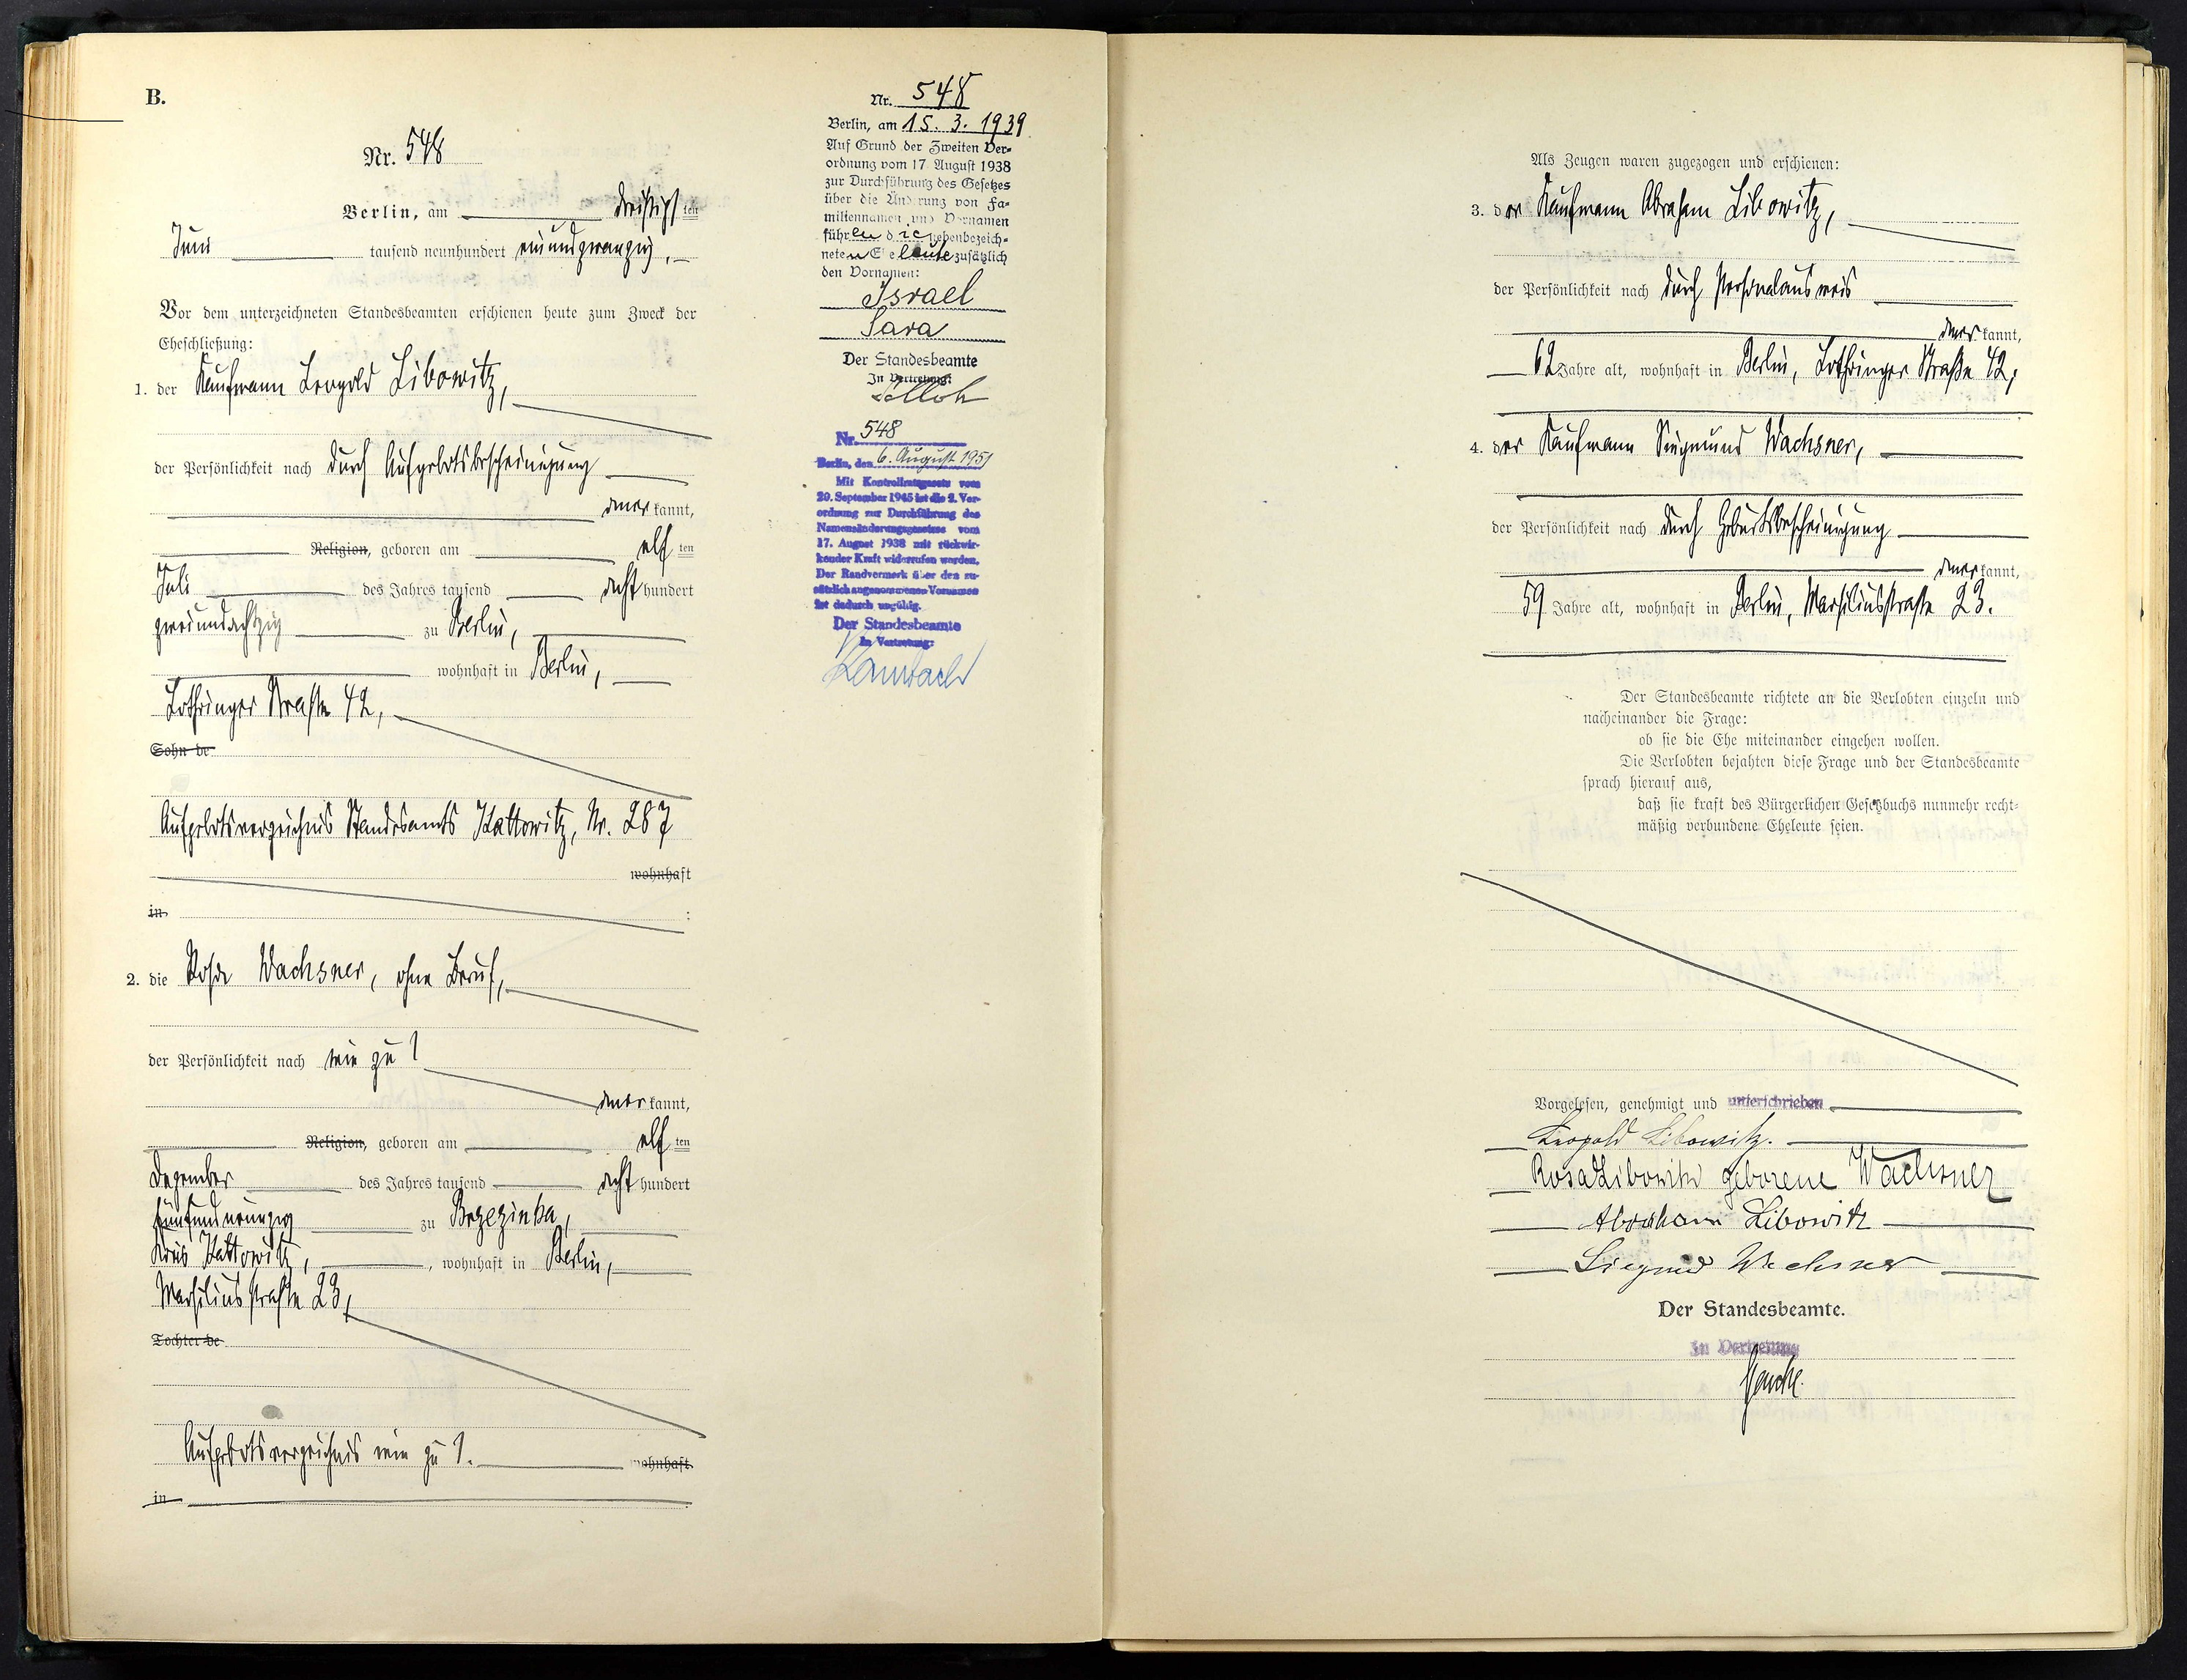 B.
Nr. 548
Berlin, am dreißigsten
Juni tausend neunhundert einundzwanzig,
Vor dem unterzeichneten Standesbeamten erschienen heute zum Zweck der
Eheschließung:
1. der Kaufmann Leopold Libowitz,
der Persönlichkeit nach durch Aufgebotsbescheinigung
anerkannt,
Religion, geboren am elften
Juli des Jahres tausend achthundert
zweiundachtzig zu Berlin,
wohnhaft in Berlin,
Lothringer Straße 42,
Sohn de
Aufgebotsverzeichnis Standesamts Kattowitz, Nr. 287
wohnhaft
in ;
2. die Rosa Wachsner, ohne Beruf,
der Persönlichkeit nach wie zu 1
anerkannt,
Religion, geboren am elften
Dezember des Jahres tausend achthundert
fünfundneunzig zu Brzezinka,
Kreis Kattowitz, , wohnhaft in Berlin,
Marsiliusstraße 23,
Tochter de
Aufgebotsverzeichnis wie zu 1. wohnhaft
in .
Nr. 548
Berlin, am 15. 3. 1939
Auf Grund der Zweiten Ver-
ordnung vom 17 August 1938
zur Durchführung des Gesetzes
über die Änderung von Fa-
miliennamen und Vornamen
führen die nebenbezeich-
neten Eheleute zusätzlich
den Vornamen:
Israel
Sara
Der Standesbeamte
In Vertretung:
Nr. 548
Berlin, den 6. August 1951
Mit Kontrollratsgesetz vom
20. September 1945 ist die 2. Ver-
ordnung zur Durchführung des
Namensänderungsgesetzes vom
17. August 1938 mit rückwir-
kender Kraft widerrufen worden.
Der Randvermerk über den zu-
sätzlich angenommenen Vornamen
ist dadurch ungültig.
Der Standesbeamte
In Vertretung:
Als Zeugen waren zugezogen und erschienen:
3. der Kaufmann Abraham Libowitz,
der Persönlichkeit nach durch Personalausweis
anerkannt,
62 Jahre alt, wohnhaft in Berlin, Lothringer Straße 42;
4. der Kaufmann Siegmund Wachsner,
der Persönlichkeit nach durch Geburtsbescheinigung
anerkannt,
59 Jahre alt, wohnhaft in Berlin, Marsiliusstraße 23.
Der Standesbeamte richtete an die Verlobten einzeln und
nacheinander die Frage:
ob sie die Ehe miteinander eingehen wollen.
Die Verlobten bejahten diese Frage und der Standesbeamte
sprach hierauf aus,
daß sie kraft des Bürgerlichen Gesetzbuchs nunmehr recht-
mäßig verbundene Eheleute seien.
Vorgelesen, genehmigt und unterschrieben
Leopold Libowitz.
Rosa Libowitz geborene Wachsner
Abraham Libowitz
Siegmund Wachsner
Der Standesbeamte.
In Vertretung